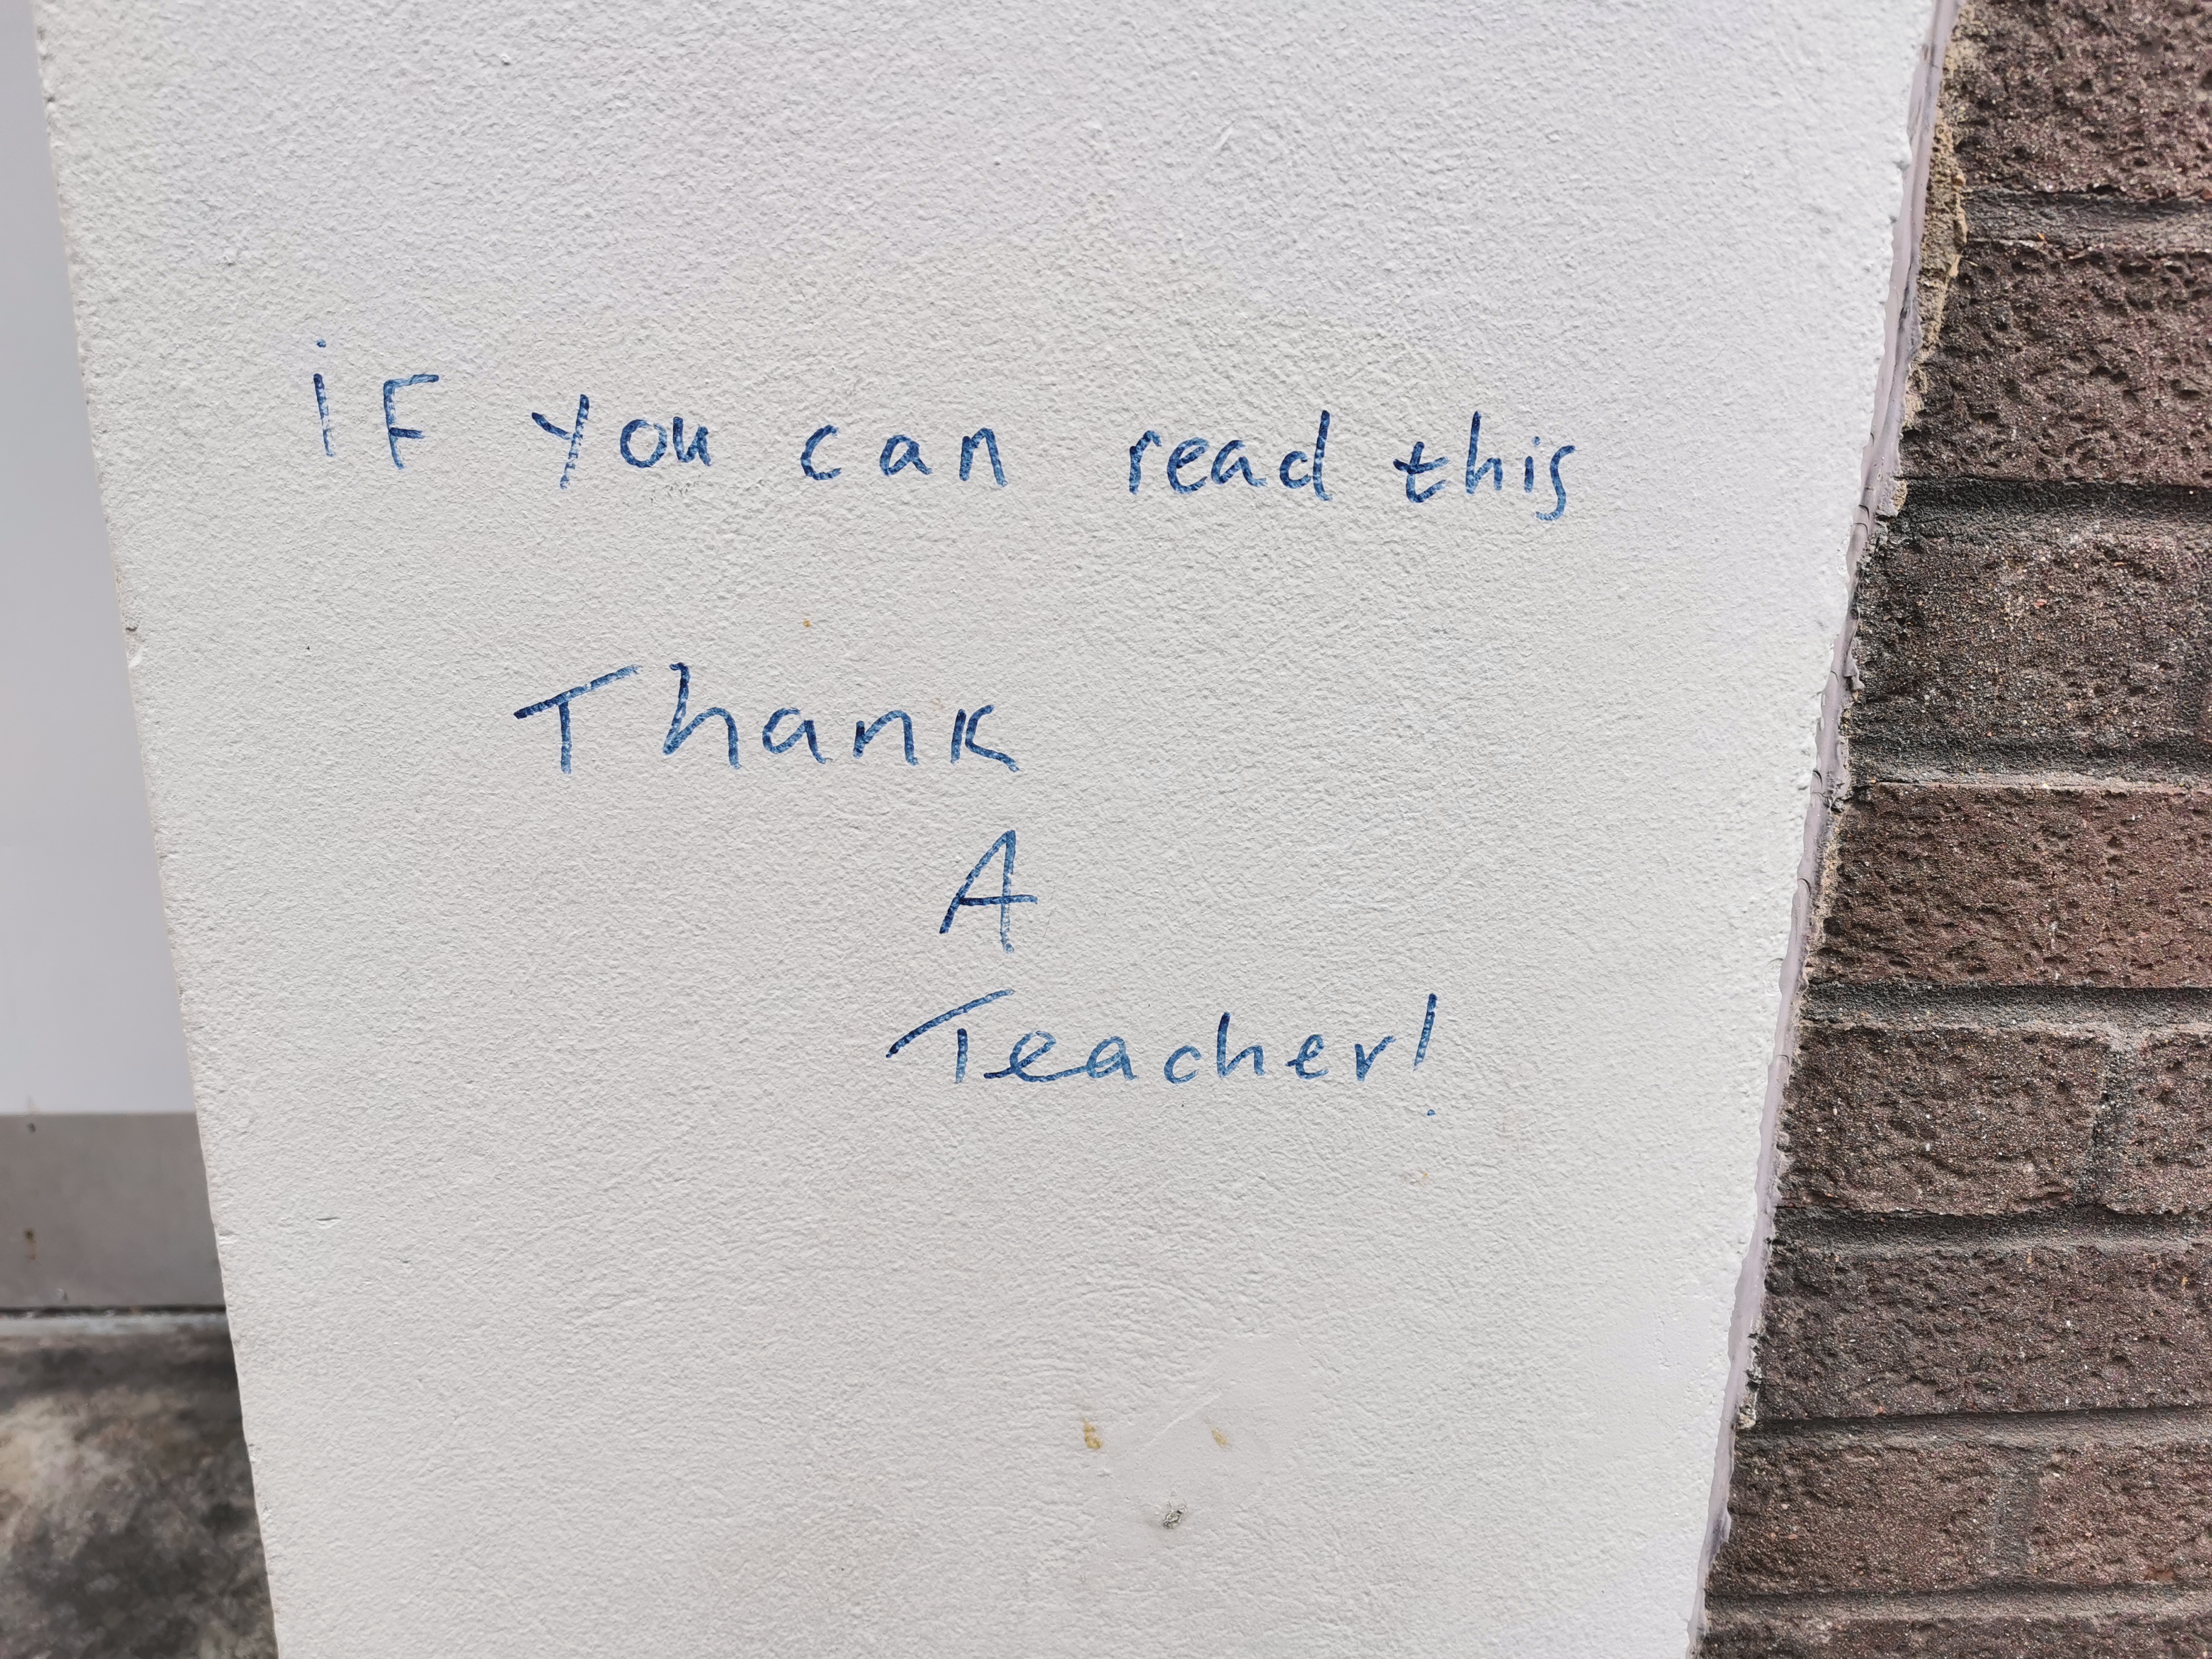 iF you can read this
Thank
A
Teacher!